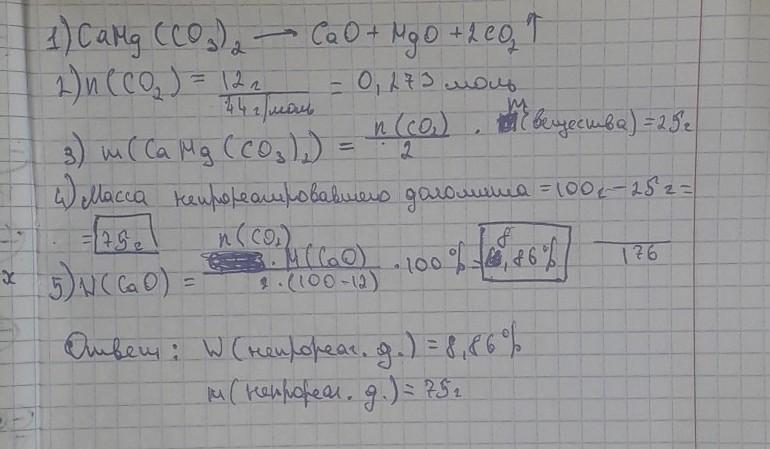 1) CaMg(CO₃)₂ → CaO + MgO + 2CO₂↑
2) n(CO₂) = 12г / 44г/моль = 0,273 моль
3) m(CaMg(CO₃)₂) = n(CO₂) / 2 · M(вещества) = 25г
4) Масса непрореагировавшего доломита = 100г − 25г =
= 75г
5) W(CaO) = n(CO₂) · M(CaO) / 2 · (100 − 12) · 100% = 8,86%
176
x
Ответ: W(непрореаг. д.) = 8,86%
m(непрореаг. д.) = 75г